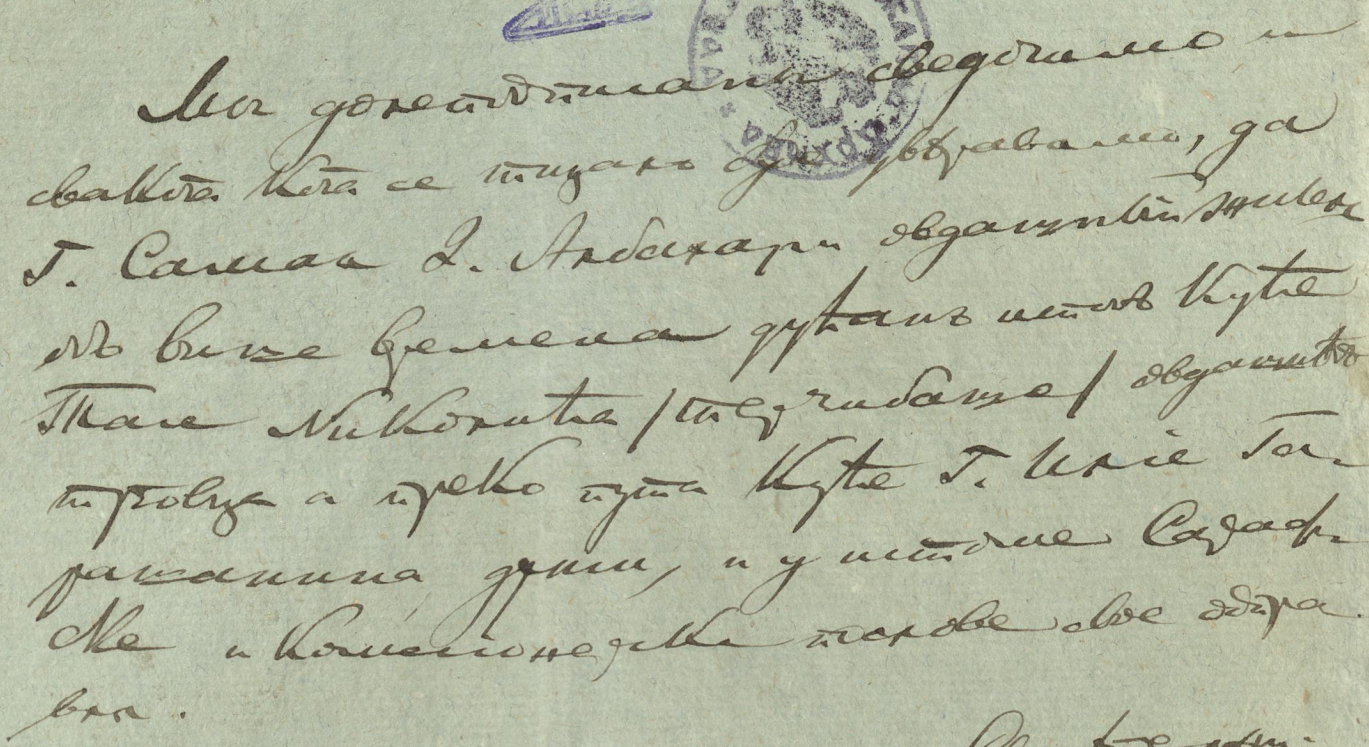 Мы долепотписани сведочимо и
свакога кога се тицало буде увѣравамо, да
Г. Самаил Д. Албахари овдашнѣй житель
одъ више времена дућанъ испод куће
Тасе Николића /терзибаше/ овдашнѣгъ
трговца а преко пута куће Г. Иліе Га-
ражанина држи, и у истоме Сараф-
ске и комисіонерске послове свое одпра
вля.